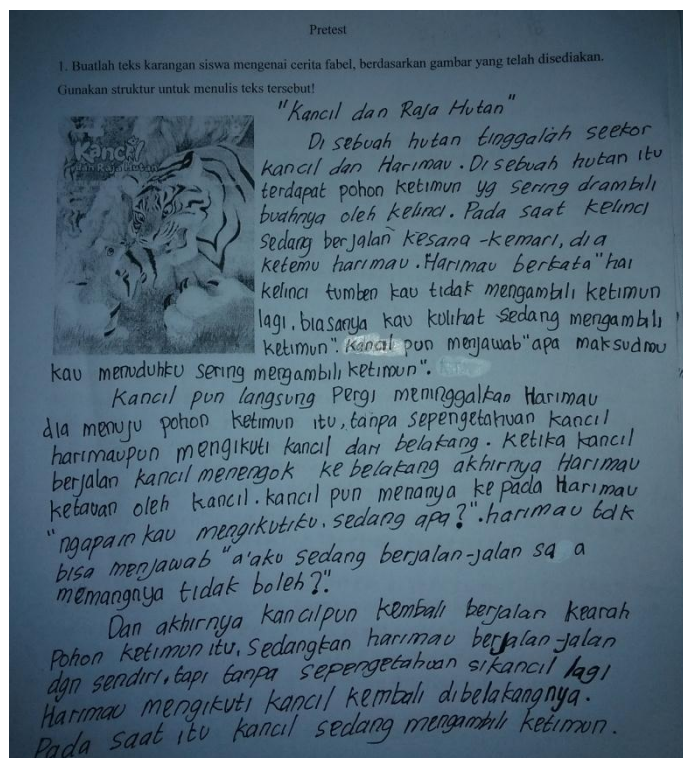 Pretest
1. Buatlah teks karangan siswa mengenai cerita fabel, berdasarkan gambar yang telah disediakan.
Gunakan struktur untuk menulis teks tersebut!
"Kancil dan Raja Hutan"
Kancil
dan Raja Hutan
Di sebuah hutan tinggalah seekor
kancil dan Harimau. Di sebuah hutan itu
terdapat pohon ketimun yg sering diambili
buahnya oleh kelinci. Pada saat kelinci
sedang berjalan kesana-kemari, dia
ketemu harimau. Harimau berkata "hai
kelinci tumben kau tidak mengambili ketimun
lagi, biasanya kau kulihat sedang mengambili
ketimun". Kancil pun menjawab "apa maksudmu
kau menuduhku sering mengambili ketimun".
Kancil pun langsung Pergi meninggalkan Harimau
dia menuju pohon ketimun itu, tanpa sepengetahuan kancil
harimaupun mengikuti kancil dari belakang. Ketika kancil
berjalan kancil menengok ke belakang akhirnya Harimau
ketauan oleh kancil. kancil pun menanya kepada Harimau
"ngapain kau mengikutiku, sedang apa?". harimau tdk
bisa menjawab "a'aku sedang berjalan-jalan sa a
memangnya tidak boleh?".
Dan akhirnya kancilpun kembali berjalan kearah
Pohon ketimun itu, Sedangkan harimau berjalan-jalan
dgn sendiri, tapi tanpa sepengetahuan sikancil lagi
Harimau mengikuti kancil kembali dibelakangnya.
Pada saat itu kancil sedang mengambili ketimun.